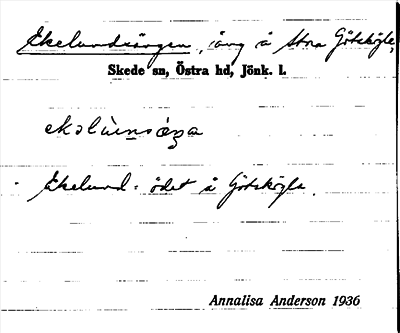 Ekelundsängen, äng å Stora Götsbygle,
Skede sn, Östra hd, Jönk. l.
ekəlùnsǽŋa
Ekelund = ödet å Götsbygle.
Annalisa Anderson 1936